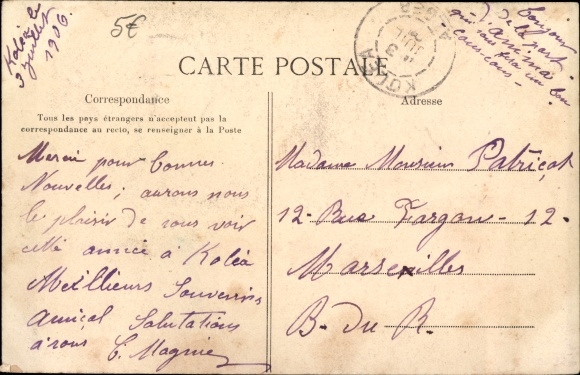 Koléa le
3 juillet
1906.
5€
bonjour
de la part
d'anima
qui vous fera un bon
cous-cous-
KOLEA
CARTE POSTALE
Correspondance
Tous les pays étrangers n'acceptent pas la
correspondance au recto, se renseigner à la Poste
Adresse
Merci pour bonnes
Nouvelles; aurons nous
le plaisir de vous voir
cette année à Koléa
Meillieurs Souvenirs
Amical Salutations
à vous E. Magnie
Madame Monsieur Patriçot
12- Rue Fargau- 12-
Marseilles
B. du R.